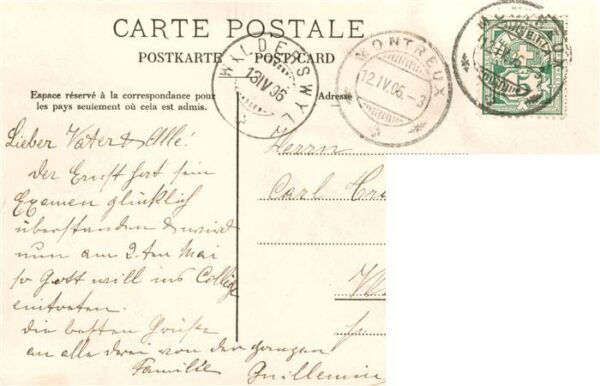 CARTE POSTALE
POSTKARTE POSTCARD
Espace réservé à la correspondance pour
les pays seulement où cela est admis.
Adresse
WILDERSWYL
13.IV.06
MONTREUX
12.IV.06.-3
MONTREUX
HELVETIA
5
Lieber Vater & Alle!
Der Ernst hat sein
Examen glücklich
überstanden & wird
nun am 2. ten Mai
so Gott will ins Collège
eintreten.
Die besten Grüße
an alle drei von der ganzen
Familie Guillemin
Herrn
Carl